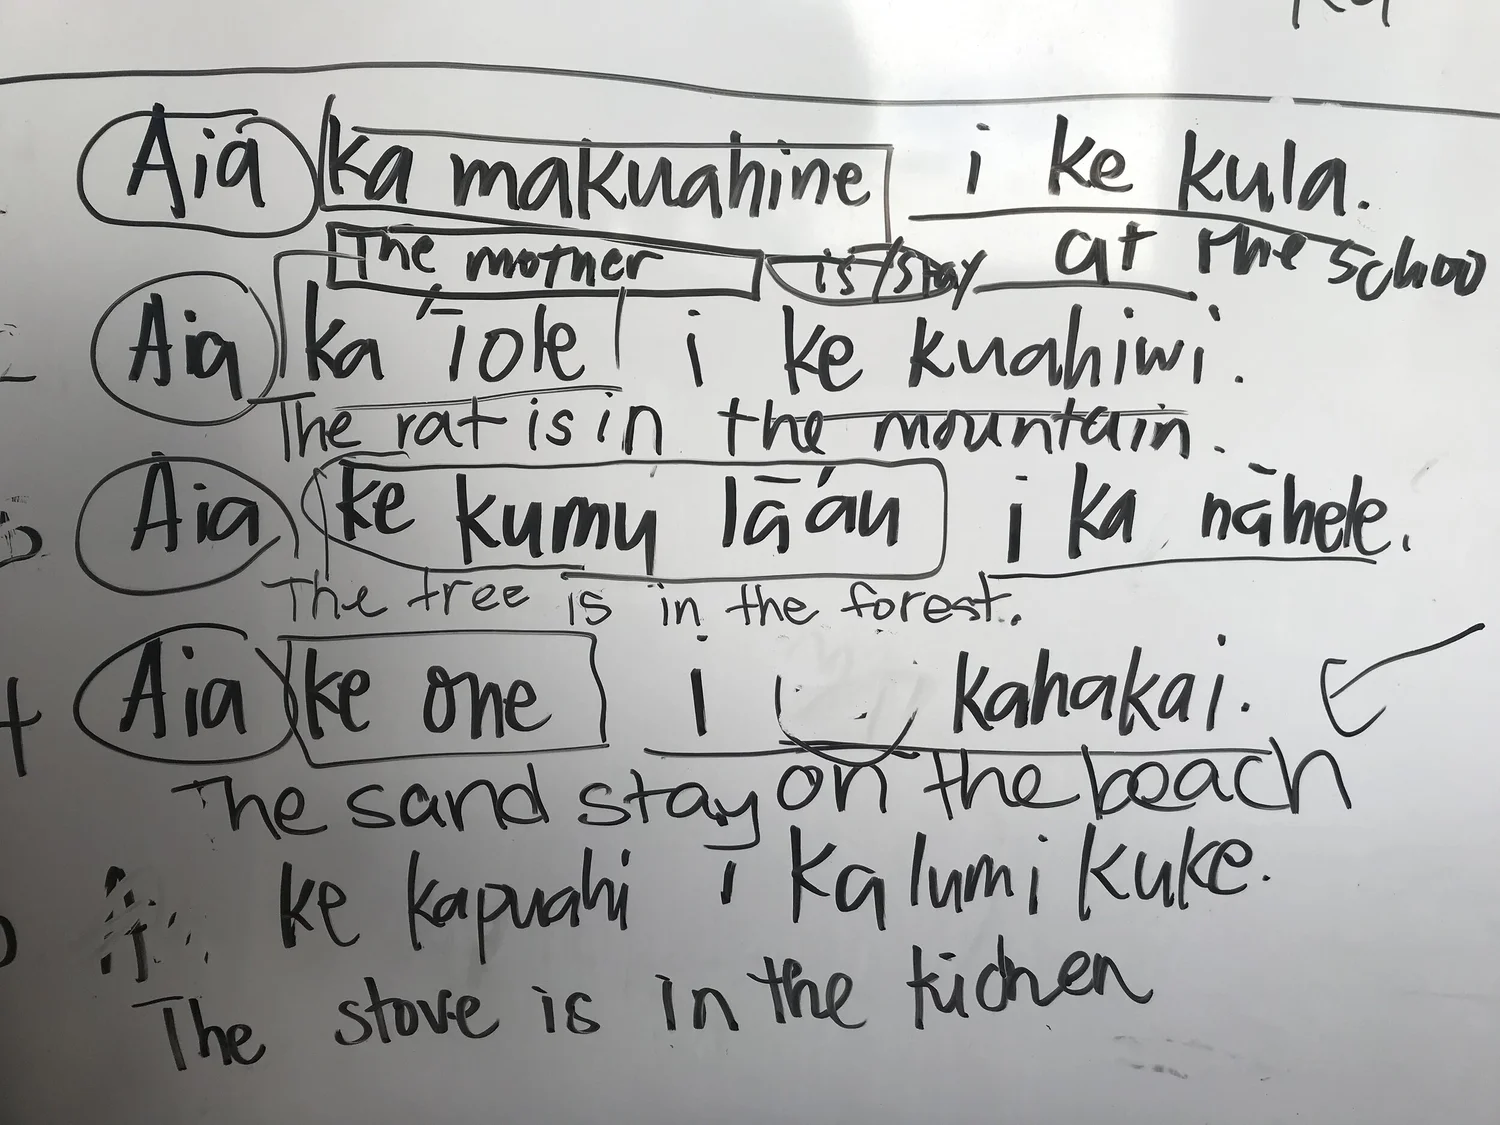 Aia ka makuahine i ke kula.
The mother is/stay at the school
Aia ka ʻīole i ke kuahiwi.
The rat is in the mountain.
Aia ke kumu lāʻau i ka nāhele.
The tree is in the forest.
Aia ke one i kahakai.
The sand stay on the beach
ke kapuahi i ka lumi kuke.
The stove is in the kichen